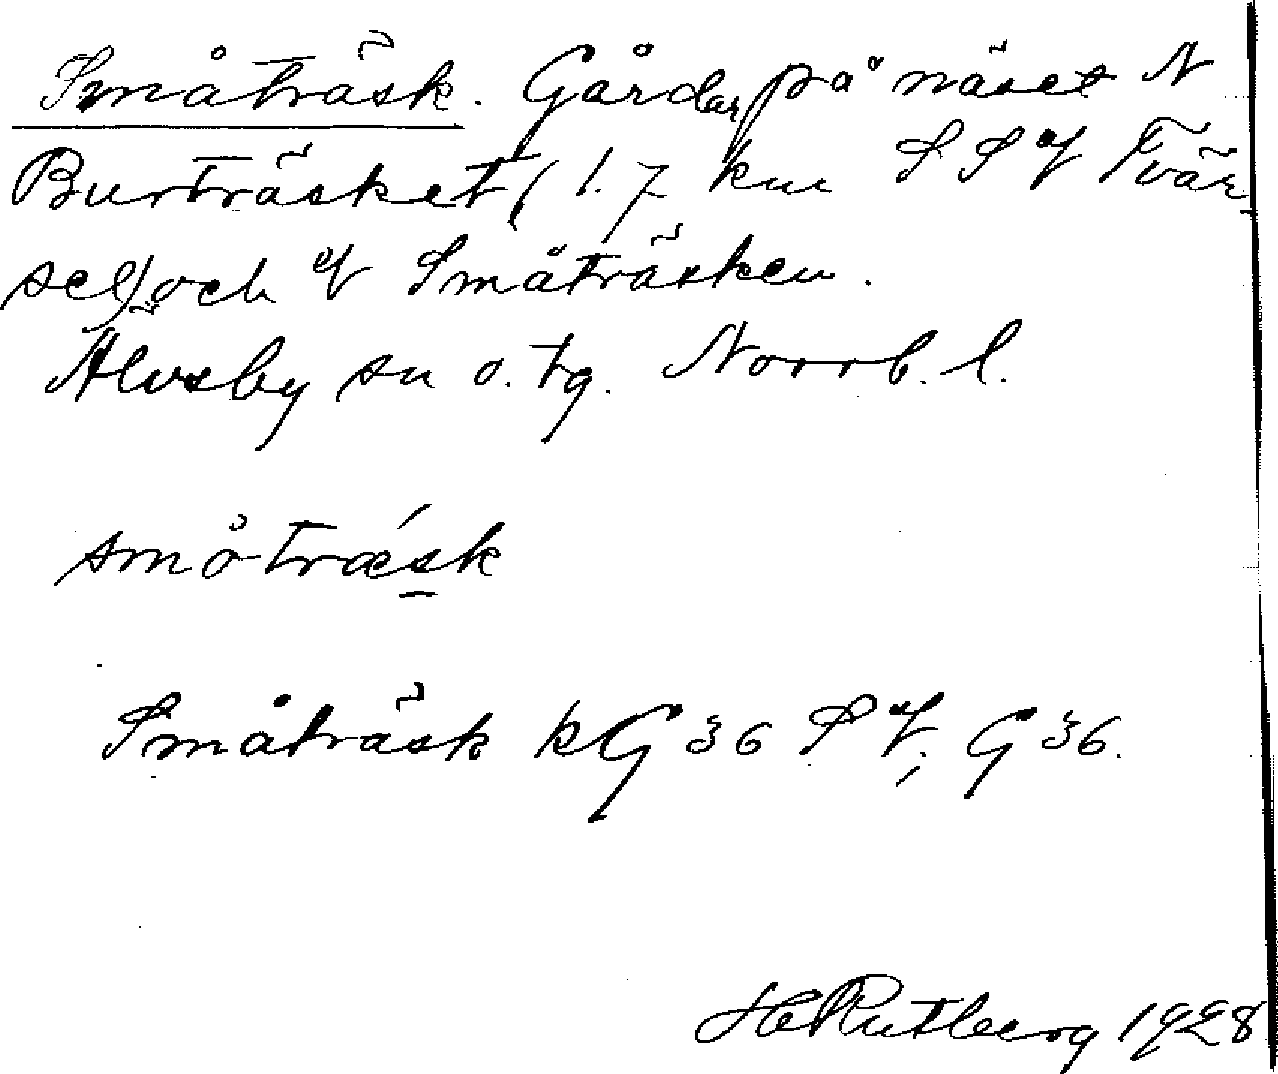 Småträsk. Gårdar på näset N
Burträsket (1.7 km SSV Tvär-
sel) och V Småträsken.
Älvsby sn o. tg. Norrb. l.
småtræ´sk
Småträsk kG 36 SV; G 36.
H Rutberg 1928